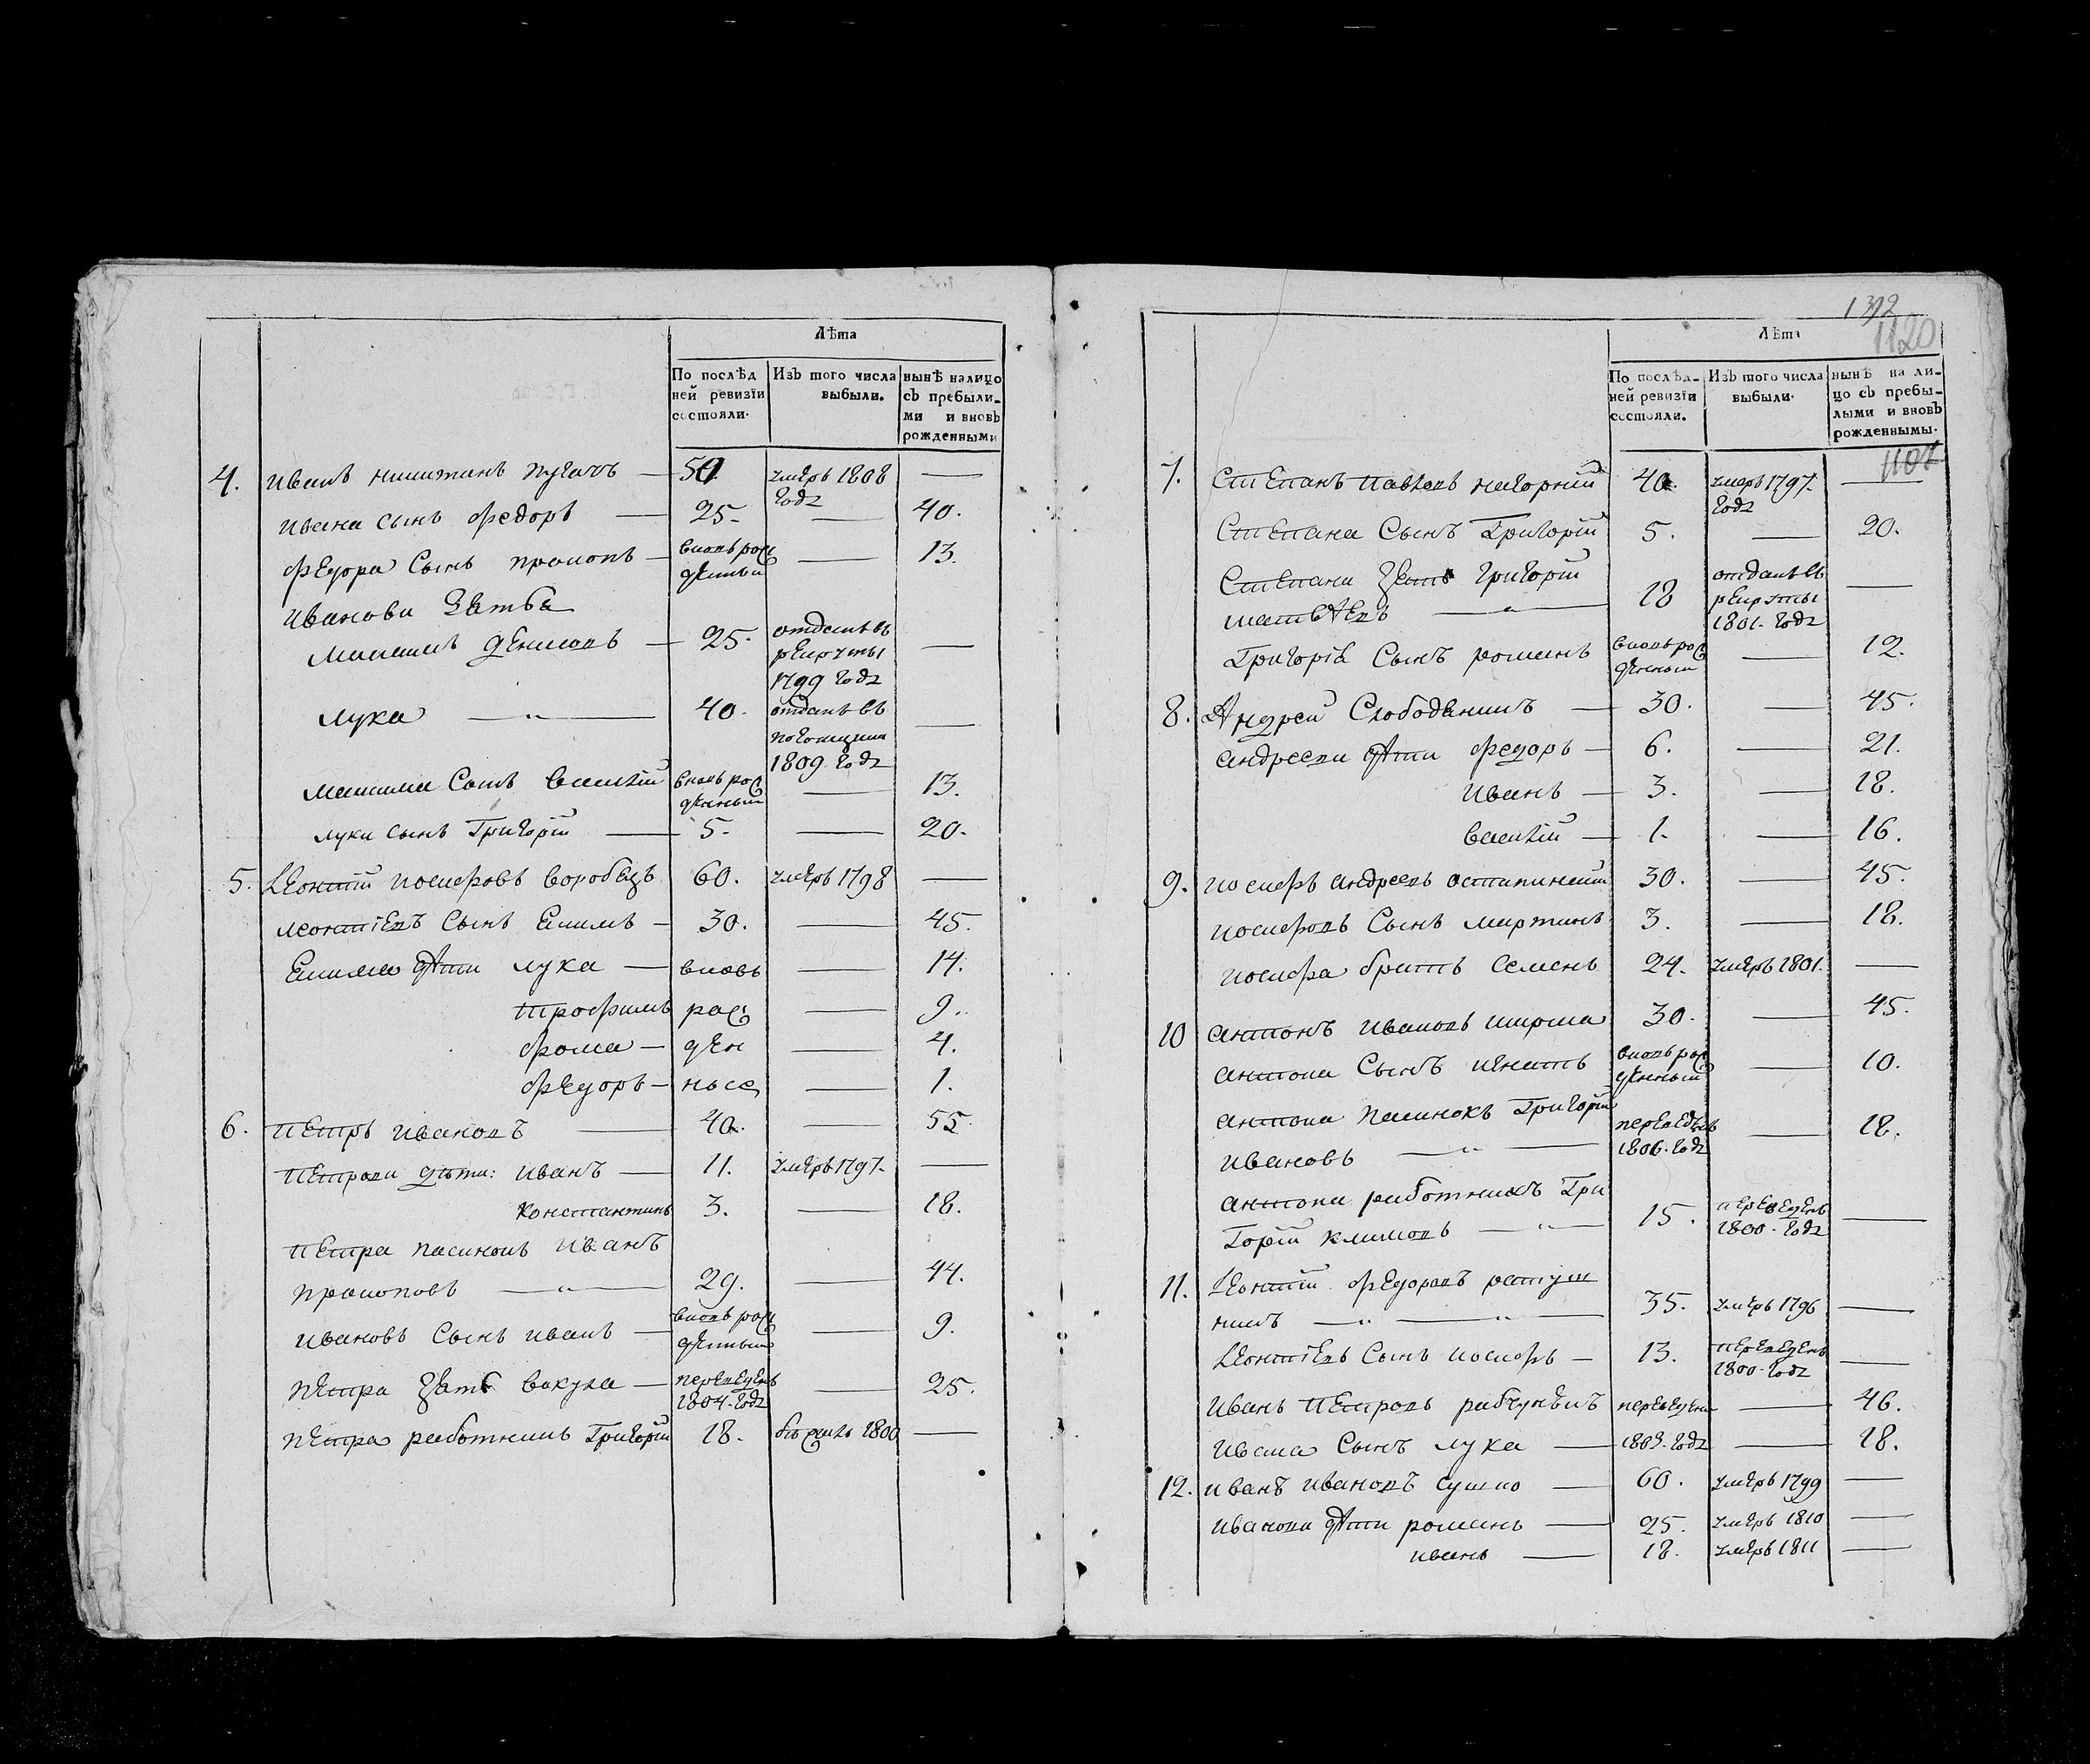 Лѣта
По послѣд
ней ревизїи
состояли.
Изъ того числа
выбыли.
нынѣ налицо
съ прибыли-
ми и вновь
рожденными
4. Иванъ Никитинъ Пугачъ — 50. умеръ 1808 —
года
Ивана сынъ Федоръ — 25. — 40.
Федора Сынъ Прокопъ — вновь рож — 13.
денный
Иванови Зятья
Максимъ Денисовъ — 25. отданъ въ —
рекруты
1799 года
Лука — „ — 40. отданъ въ —
погонщики
1809. года
Максима Сынъ Василій вновь рож — 13.
денный
Луки сынъ Григорій — 5. — 20.
5. Леонтій Иосифовъ Воробецъ 60. умеръ 1798 —
Леонтіевъ Сынъ Екимъ — 30. — 45.
Екима дѣти Лука — вновь — 14.
Трофимъ рож — 9.
Фома — ден — 4.
Федоръ — ные — 1.
6. Петръ Ивановъ — 40. — 55.
Петрови дѣти: Иванъ — 11. умеръ 1797. —
Константинъ 3. — 18.
Петра пасинокъ Иванъ
Прокоповъ — „ — 29. — 44.
Ивановъ Сынъ Иванъ — вновь рож — 9.
денный
Петра Зять Вакула — переведенъ — 25.
1804. года
Петра работникъ Григорій 18. бежалъ 1800 —
1392
1120
Лѣта
По послѣд-
ней ревизїи
состояли.
Изъ того числа
выбыли.
нынѣ на ли-
цо съ прибы-
лыми и вновь
рожденнымы.
1107
7. Степанъ Павловъ Нагорний 40. умеръ 1797. —
года
Степана Сынъ Григорій 5. — 20.
Степана Зять Григорій
Матвѣевъ — „ — 18 отданъ въ —
рекруты
1801. года
Григорія Сынъ Романъ вновь рож — 12.
денный
8. Андрей Слободяникъ — 30. — 45.
Андрееви дѣти Федоръ — 6. — 21.
Иванъ — 3. — 18.
Василій — 1. — 16.
9. Иосифъ Андреевъ 30. — 45.
Иосифовъ Сынъ Мартинъ 3. — 18.
Иосифа братъ Семенъ 24. умеръ 1801. —
10 Антонъ Ивановъ 30. — 45.
Антона Сынъ Игнатъ вновь рож — 10.
денный
Антона пасинокъ Григорій
Ивановъ — „ — переведенъ — 18.
1806. года
Антона работникъ Гри
горій Климовъ — „ — 15. переведенъ —
1800. года
11. Леонтій Федоровъ Ратуш
никъ — „ — „ — 35. умеръ 1796 —
Леонтіевъ Сынъ Иосифъ — 13. переведенъ —
1800. года
Иванъ Петровъ переведени — 46.
Ивана Сынъ Лука — 1803. года — 18.
12. Иванъ Ивановъ Сушко — 60. умеръ 1799 —
Иванови дѣти Романъ — 25. умеръ 1810 —
Иванъ — 18. умеръ 1811 —